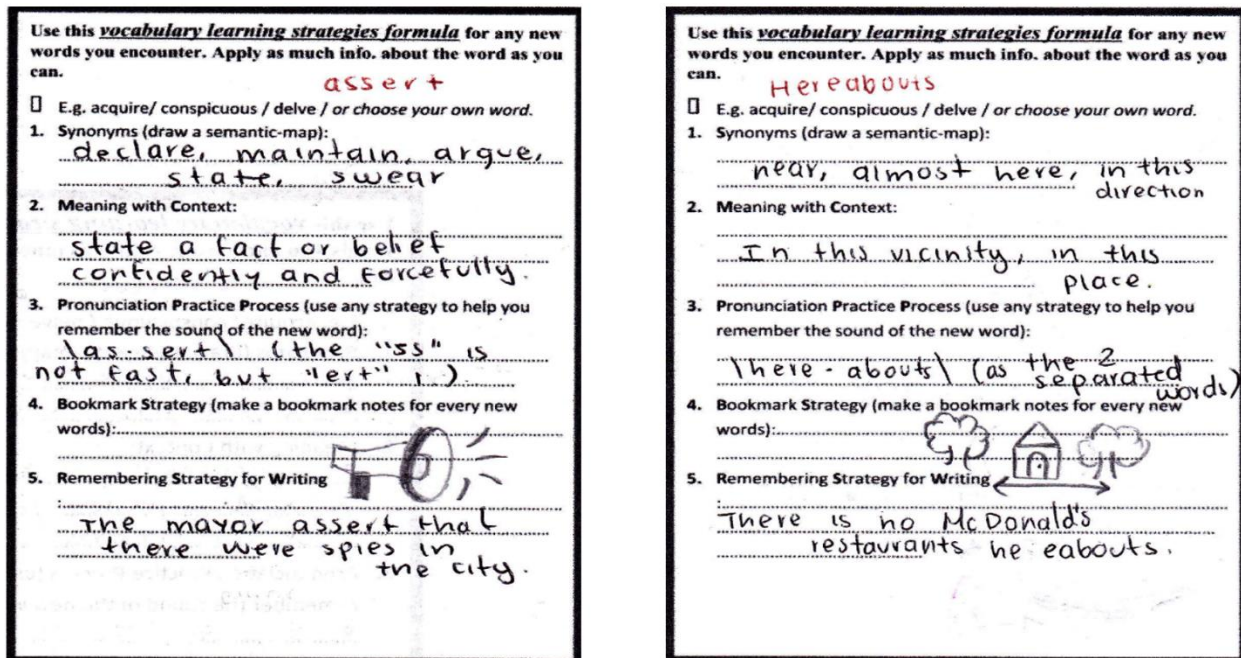 Use this vocabulary learning strategies formula for any new
words you encounter. Apply as much info. about the word as you
can.
assert
E.g. acquire/ conspicuous / delve / or choose your own word.
1. Synonyms (draw a semantic-map):
declare, maintain, argue,
state, swear
2. Meaning with Context:
state a fact or belief
confidently and forcefully.
3. Pronunciation Practice Process (use any strategy to help you
remember the sound of the new word):
\as·sert\ (the "ss" is
not fast, but "ert" ! )
4. Bookmark Strategy (make a bookmark notes for every new
words):
5. Remembering Strategy for Writing
:
The mayor assert that
there were spies in
the city.
Use this vocabulary learning strategies formula for any new
words you encounter. Apply as much info. about the word as you
can.
Hereabouts
E.g. acquire/ conspicuous / delve / or choose your own word.
1. Synonyms (draw a semantic-map):
near, almost here, in this
direction
2. Meaning with Context:
In this vicinity, in this
place.
3. Pronunciation Practice Process (use any strategy to help you
remember the sound of the new word):
\here - abouts\ (as the 2
separated
words)
4. Bookmark Strategy (make a bookmark notes for every new
words):
5. Remembering Strategy for Writing
:
There is no McDonald's
restaurants he eabouts.